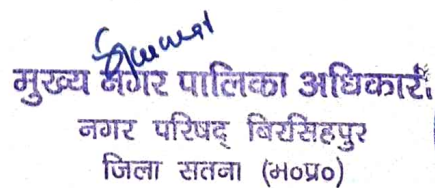 मुख्य नगर पालिका अधिकारी
नगर परिषद् बिरसिहपुर
जिला सतना (म०प्र०)